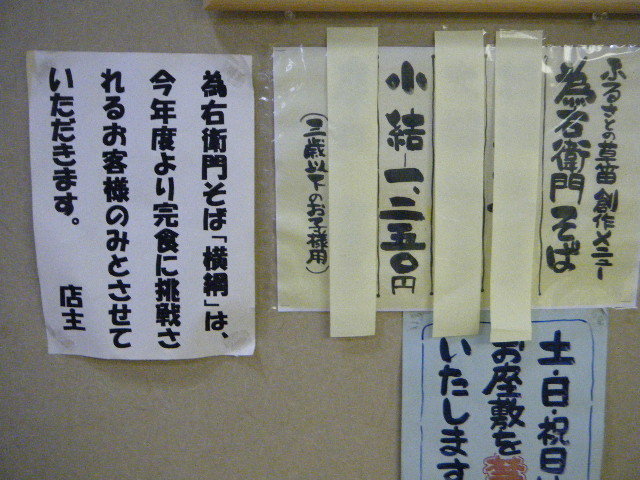 為右衛門そば「横綱」は、
今年度より完食に挑戦さ
れるお客様のみとさせて
いただきます。
店主
ふるさとの草笛 創作メニュー
為右衛門そば
小結 一、二五〇円
(三歳以下のお子様用)
土・日・祝日は
お座敷を禁
いたします